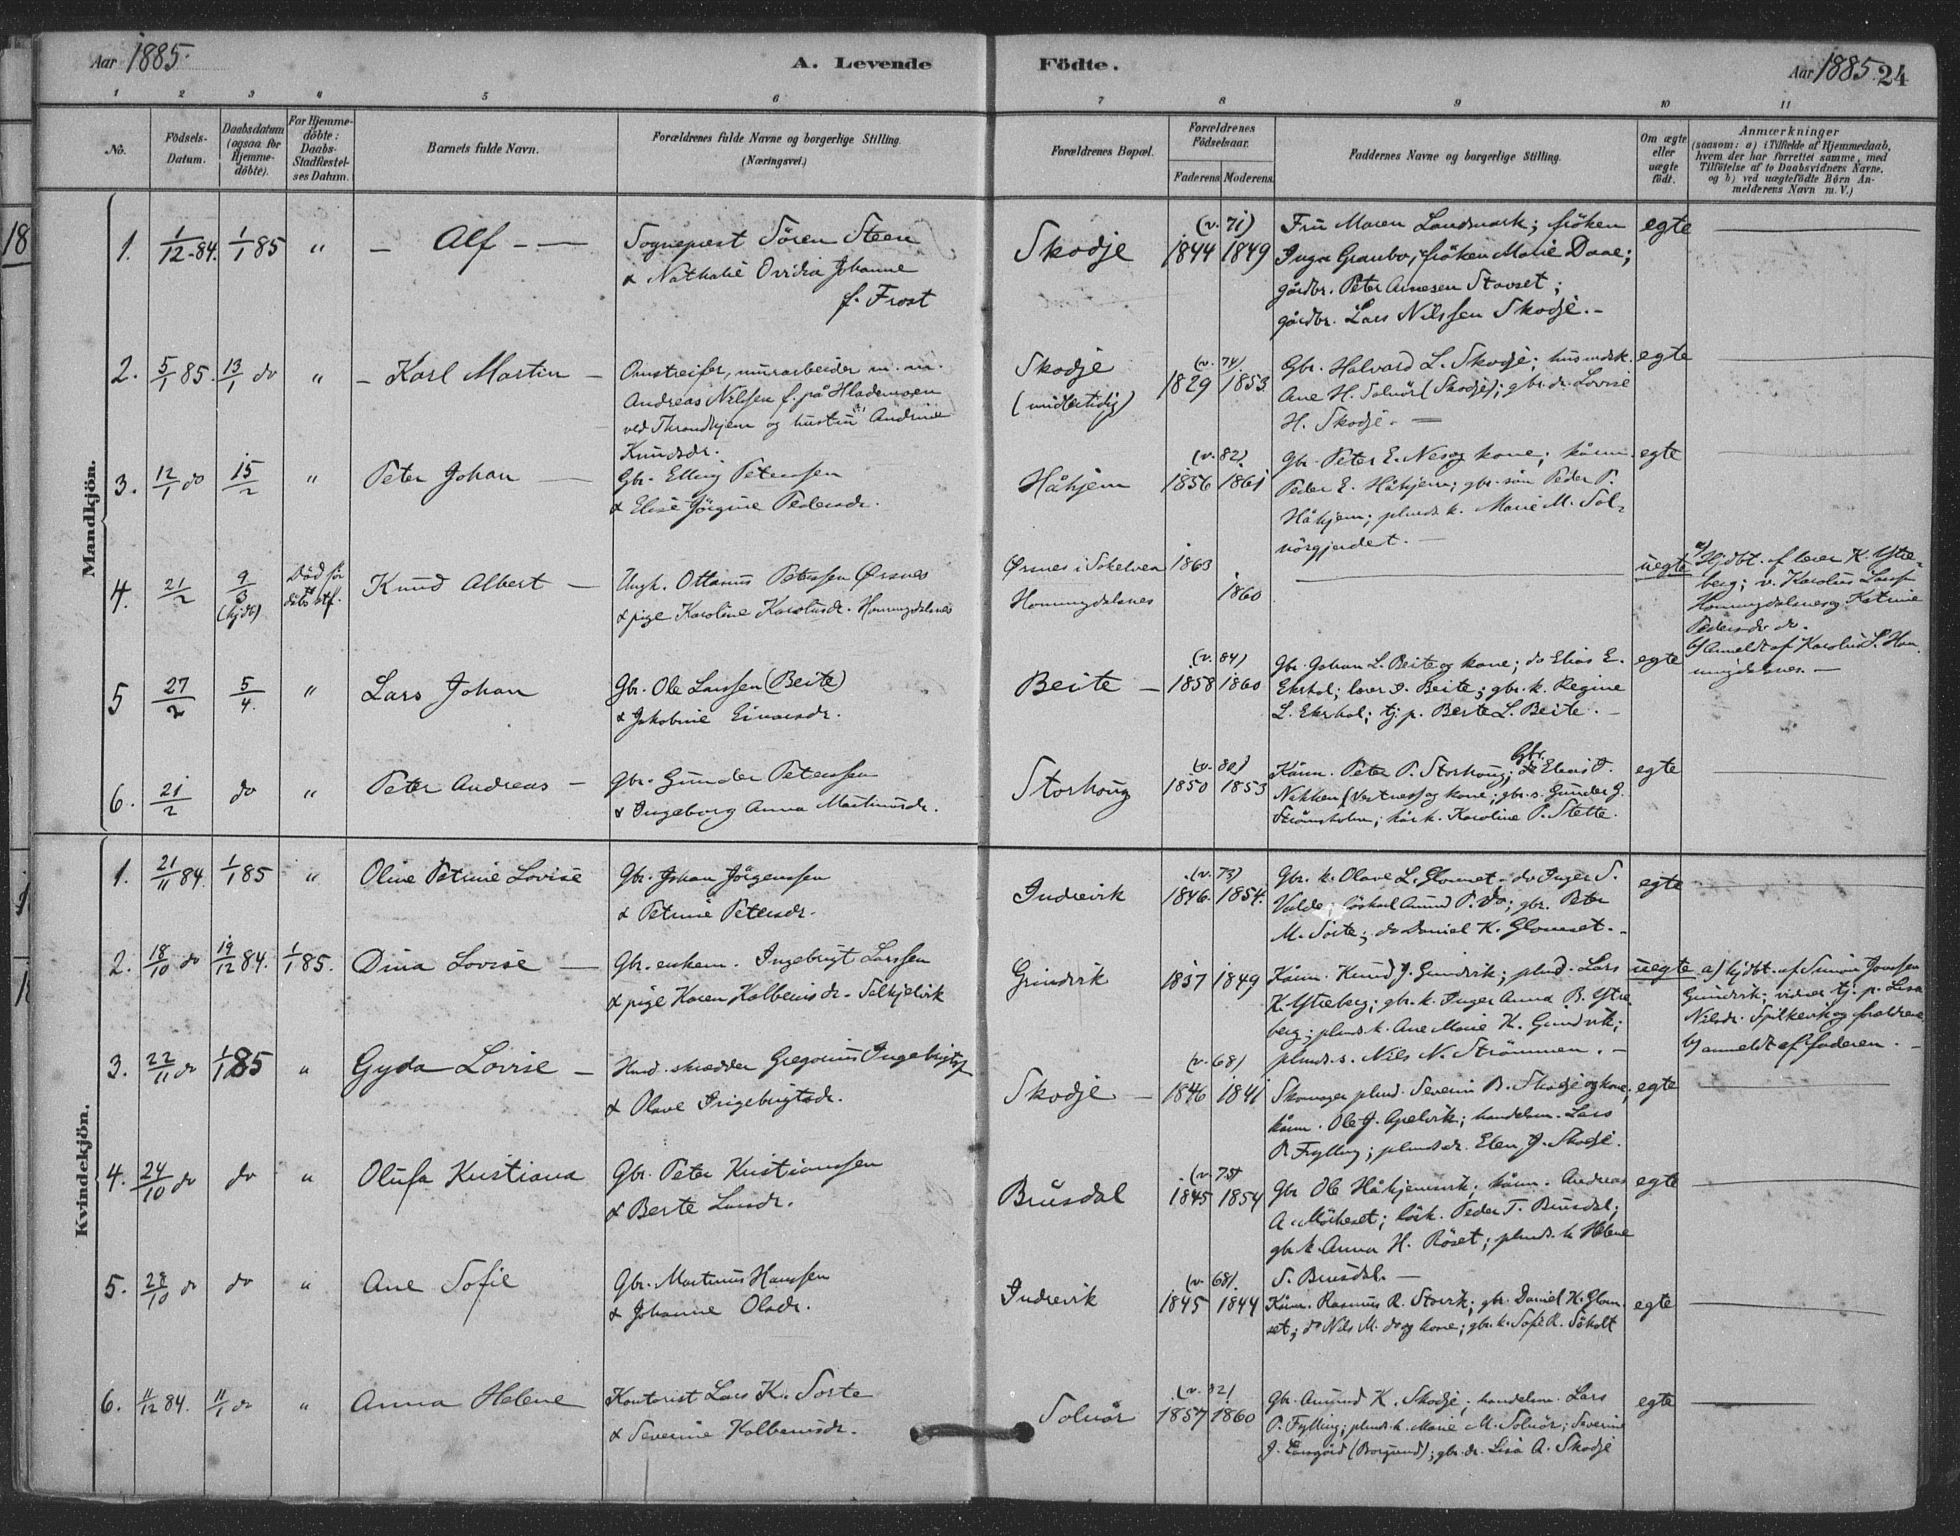 Aar 1885. A. Levende Födte. Aar 1885 24
1 2 3 4 5 6 7 8 9 10 11
No.
Födsels-
Datum.
Daabsdatum
(ogsaa for
Hjemme-
döbte).
For Hjemme-
döbte:
Daabs-
Stadfæstel-
ses Datum.
Barnets fulde Navn.
Forældrenes fulde Navne og borgerlige Stilling
(Næringsvei.)
Forældrenes Bopæl.
Forældrenes
Födselsaar.
Faderens Moderens.
Faddernes Navne og borgerlige Stilling.
Om ægte
eller
uægte
födt.
Anmærkninger
(saasom: a) i Tilfælde af Hjemmedaab,
hvem der har forrettet samme, med
Tilföielse af to Daabsvidners Navne.
og b) ved uægtefödte Börn An-
melderens Navn m. V.)
Mandkjön.
1. 1/12-84. 1/1 85 " - Alf - -
Sogneprest Sören Steen
& Nathalie Ovidia Johanne
f. Frost
Skodje
(v. 71)
1844 1849
Fru Maren Landmark; fröken
Inga Grambo; fröken Marie Daae;
gårdbr. Peter Annesen Stavset;
gårdbr. Lars Nilssen Skodje.-
egte
2. 5/1 85. 13/1 do " - Karl Martin -
Omstreifer, murarbeider m. m.
Andreas Nilsen f. på Hlademoen
ved Throndhjem og hustru Andrine
Knudsdr.
Skodje
(midlertidig)
(v. 74)
1829 1853
Gbr. Halvard L. Skodje; husmdsk.
Ane H. Solnör (Skodje); gbr. dr. Lovise
H. Skodje. -
egte
3. 12/1 do 15/2 " Peter Johan -
Gbr. Elling Peterssen
& Elise Jörgine Pedersdr.
Håhjem
(v. 82)
1856 1861
Gbr. Peter E. Nes og kone; kårm.
Peder E. Håhjem; gbr. sön Peder P.
Håhjem; plmds. k. Marie M. Sol-
nörgjerdet. -
egte
4. 21/2 9/3 (hjdbt) Död för
dåbs stf.
Knud Albert -
Ungk. Ottanus Peterssen Ørsnes
& pige Karoline Karolusdr. Honningdalsnes
Ørsnes i Sökelven 1863
Honningdalsnes 1860
uegte
a) Hjdbt. af lærer K. Ytre-
berg; v. Karolus Larss.
Honningdalsnes og Katrine
Pedersdr. do.
b) Anmeldt af Karolus L. Hon-
ningdalsnes. -
5 27/2 5/4. " Lars Johan
Gbr. Ole Larssen (Beite)
& Jakobine Einarsdr.
Beite -
(v. 84)
1858 1860
Gbr. Johan L. Beite og kone; do Elias E.
Ekrhol; lærer J. Beite; gbr. k. Regine
L. Ekrhol; tj. p. Berte L. Beite. -
egte
6. 21/2 do " Peter Andreas -
Gbr. Gunder Peterssen
& Ingeborg Anna Martinusdr.
Storhoug
(v. 80)
1850 1853
Gbr.
Kårm. Peter P. Storhoug; Elias J.
Nakken (Vestnes) og kone; gbr. s. Gunder G.
Strömsholm; kår k. Karoline P. Stette.
egte
Kvindekjön.
1. 21/11 84. 1/1 85 " Oline Petrine Lovise
Gbr. Johan Jörgenssen
& Petrine Petersdr.
Indrevik
(v. 73)
1846. 1854.
Gbr. k. Olave L. Glomset. do Inger S.
Valde; Amund P. do; gbr. Peter
M. Sorte; do Daniel K. Glomset. -
egte
2. 18/10 do 19/12 84. 1/1 85. Dina Lovise -
Gbr. enkem. Ingebrigt Larssen
& pige Karen Kolbeinsdr. Solkjelvik
Grindvik
1857 1849
Kårm. Knud J. Grindvik; plmd. Lars
K. Ytreberg; gbr. k. Inger Anna B. Ytre-
berg; plmds. k. Ane Marie K. Grindvik;
plmds. s. Nils N. Strömmen. -
uegte
a) hjdbt. af Simon Jonssen
Grindvik; vidner tj. p. Lisa
Nilsdr. Spilkevik og forældrene
b) anmeldt af faderen. -
3. 22/11 do 1/1 85 " Gyda Lovise -
Husd. skrædder Gregorius Ingebrigts.
& Olave Ingebrigtsdr.
Skodje -
(v. 68)
1846 1841
Skomager plmd. Severin B. Skodje og kone;
kårm. Ole J. Apelvik; handelsm. Lars
P. Fylling; plmds. dr. Elen J. Skodje.
egte
4. 24/10 do do " Olufa Kristiana
Gbr. Peter Kristianssen
& Berte Larsdr.
Brusdal
(v. 75)
1845 1854
Gbr. Ole Håhjemsvik; kårm. Andreas
A. Måheset; lösk. Peder T. Brusdal;
gbr. k. Anna H. Röset; plmds. k. Helene
S. Brusdal. -
egte
5. 28/10 do do " Ane Sofie
Gbr. Martinus Hanssen
& Johanne Olsdr.
Indrevik
(v. 68)
1845 1844
Kårm. Rasmus R. Storvik; gbr. Daniel K. Glom-
set; do Nils M. do og kone; gbr. k. Sofie R. Söholt
egte
6. 11/12 84. 11/1 do " Anna Helene
Kontorist Lars K. Sorte
& Severine Kolbeinsdr.
Solnör
(v. 82)
1857 1860
Gbr. Amund K. Skodje; handelsm. Lars
P. Fylling; plmds. k. Marie M. Solnör; Severine
J. (Borgund); gbr. dr. Lisa A. Skodje
egte